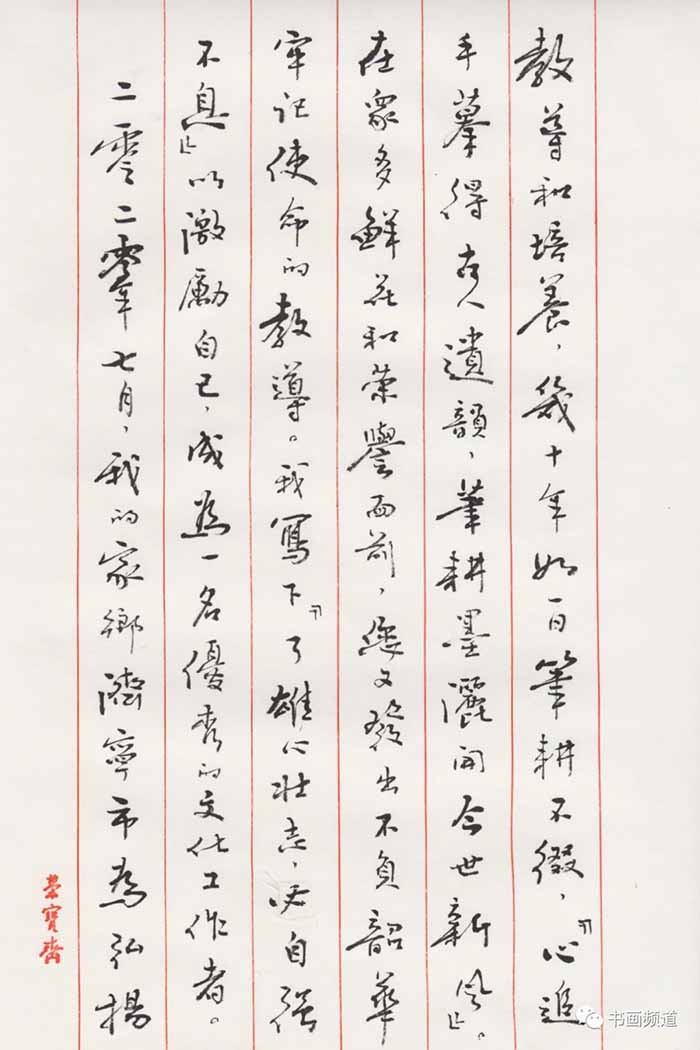 教導和培養，幾十年如一日筆耕不綴，『心追
手摹得古人遺韻，筆耕墨灑開今世新風』。
在眾多鮮花和榮譽面前，您又發出不負韶華
牢記使命的教導。我寫下『了雄心壯志，必自强
不息』以激勵自己，成為一名優秀的文化工作者。
二零二零年七月，我的家鄉濟寧市為弘揚
榮寶齋
书画频道